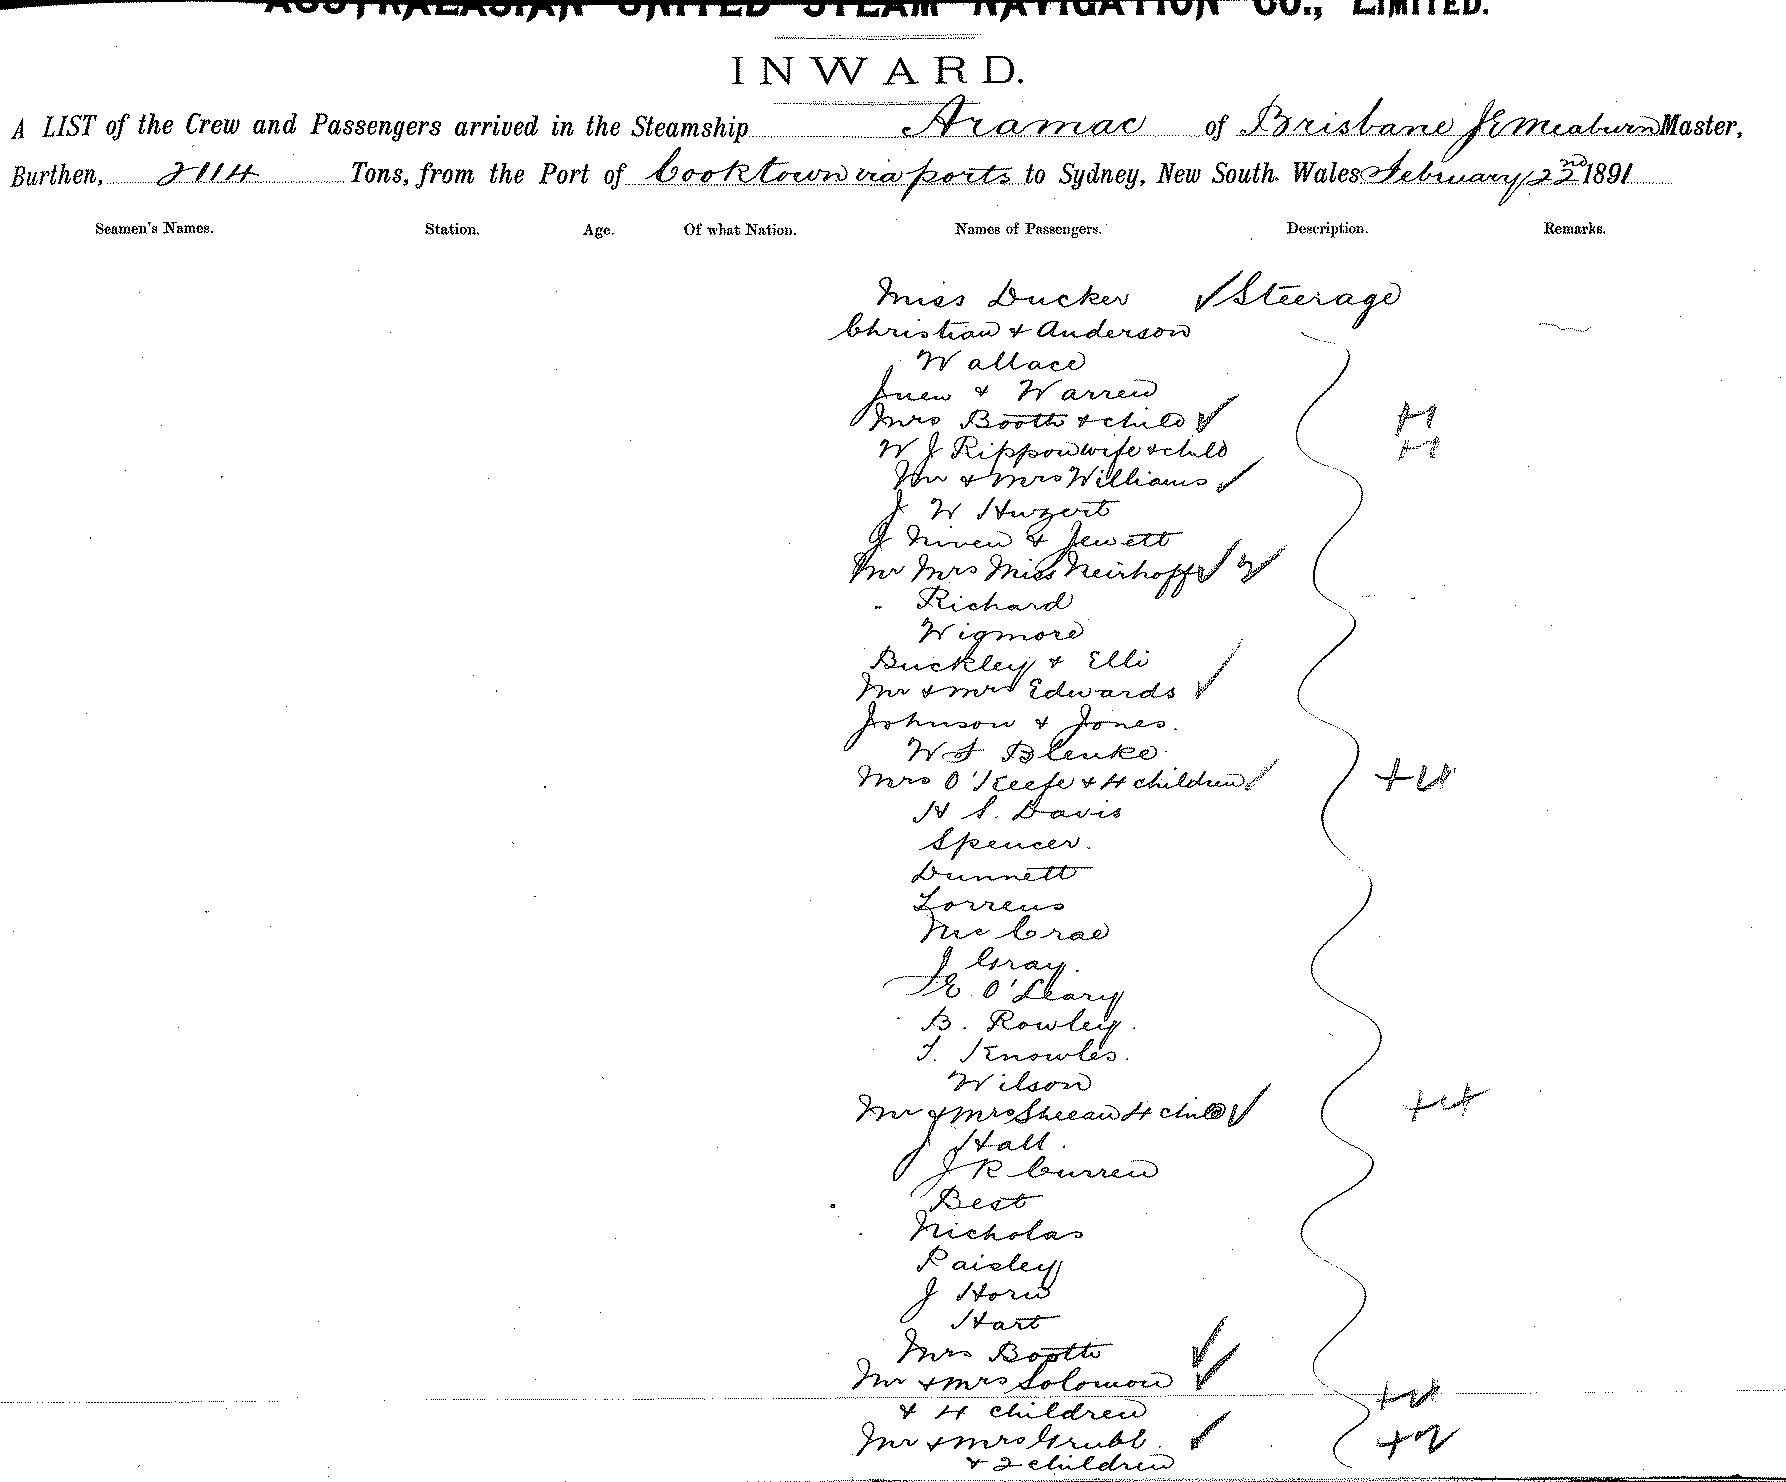 AUSTRALASIAN UNITED STEAM NAVIGATION CO., LIMITED.
INWARD.
A LIST of the Crew and Passengers arrived in the Steamship Aramac of Brisbane J E Meaburn Master,
Burthen, 2114 Tons, from the Port of Cooktown via ports to Sydney, New South Wales February 22nd 1891
Seamen's Names. Station. Age. Of what Nation. Names of Passengers. Description. Remarks.
Miss Ducker ✓ Steerage
Christian & Anderson
Wallace
& Warren
Mrs Booth & child ✓ +1
W J Rippon wife & child +1
Mr & Mrs Williams ✓
J W
J Niven & Jewett
Mr Mrs Miss Neirhoff ✓ ✓
Richard
Wigmore
Buckley & Elli
Mr & Mrs Edwards ✓
Johnson & Jones.
Blenke
Mrs O'Keefe & 4 children ✓ +4
H S. Davis
Spencer.
Dunnett
Torrens
McCrae
J Gray.
O'Leary
B. Rowley.
T. Knowles.
Wilson
Mr & Mrs Sheean 4 child ✓ +4
J Hall.
J R Curren
Best
Nicholas
Paisley
J Horn
Hart
Mrs Booth ✓
Mr & Mrs Solomon ✓
& 4 children +4
Mr & Mrs Grubb. ✓ +2
& 2 children